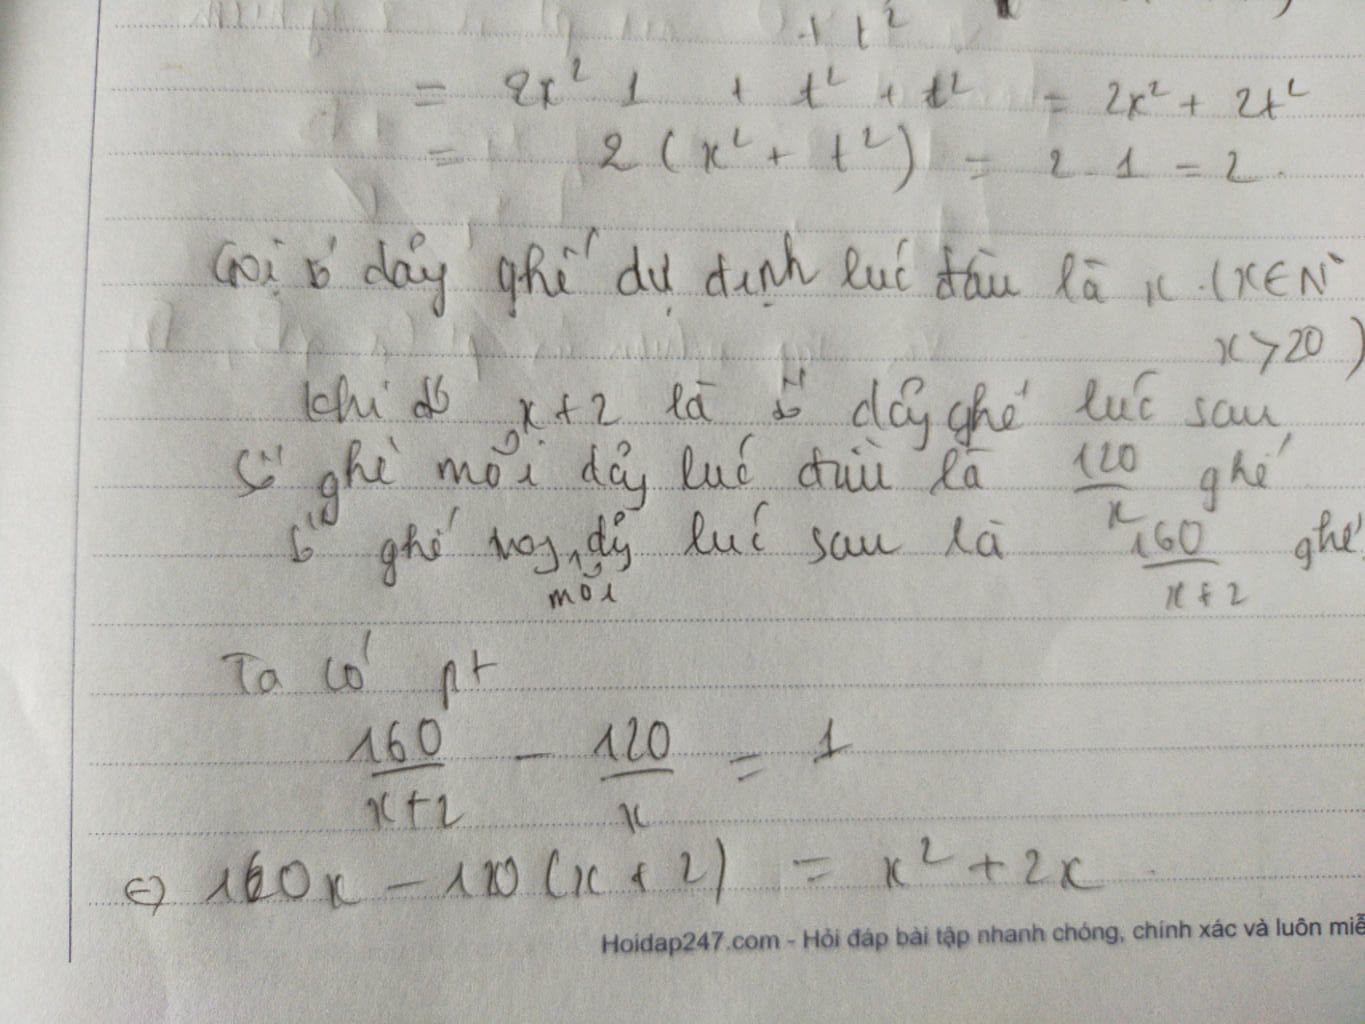 + t²
= 2x² 1 + t² + t² = 2x² + 2t²
= 2 ( x² + t² ) = 2 . 1 = 2 .
Gọi số dãy ghế dự định lúc đầu là x . (x ∈ N*
x > 20 )
Khi đó x + 2 là số dãy ghế lúc sau
Số ghế mỗi dãy lúc đầu là 120/x ghế
Số ghế mỗi dãy lúc sau là 160/x+2 ghế
Ta có pt
160/x+2 - 120/x = 1
⇔ 160x - 120 (x + 2) = x² + 2x
Hoidap247.com - Hỏi đáp bài tập nhanh chóng, chính xác và luôn miễ